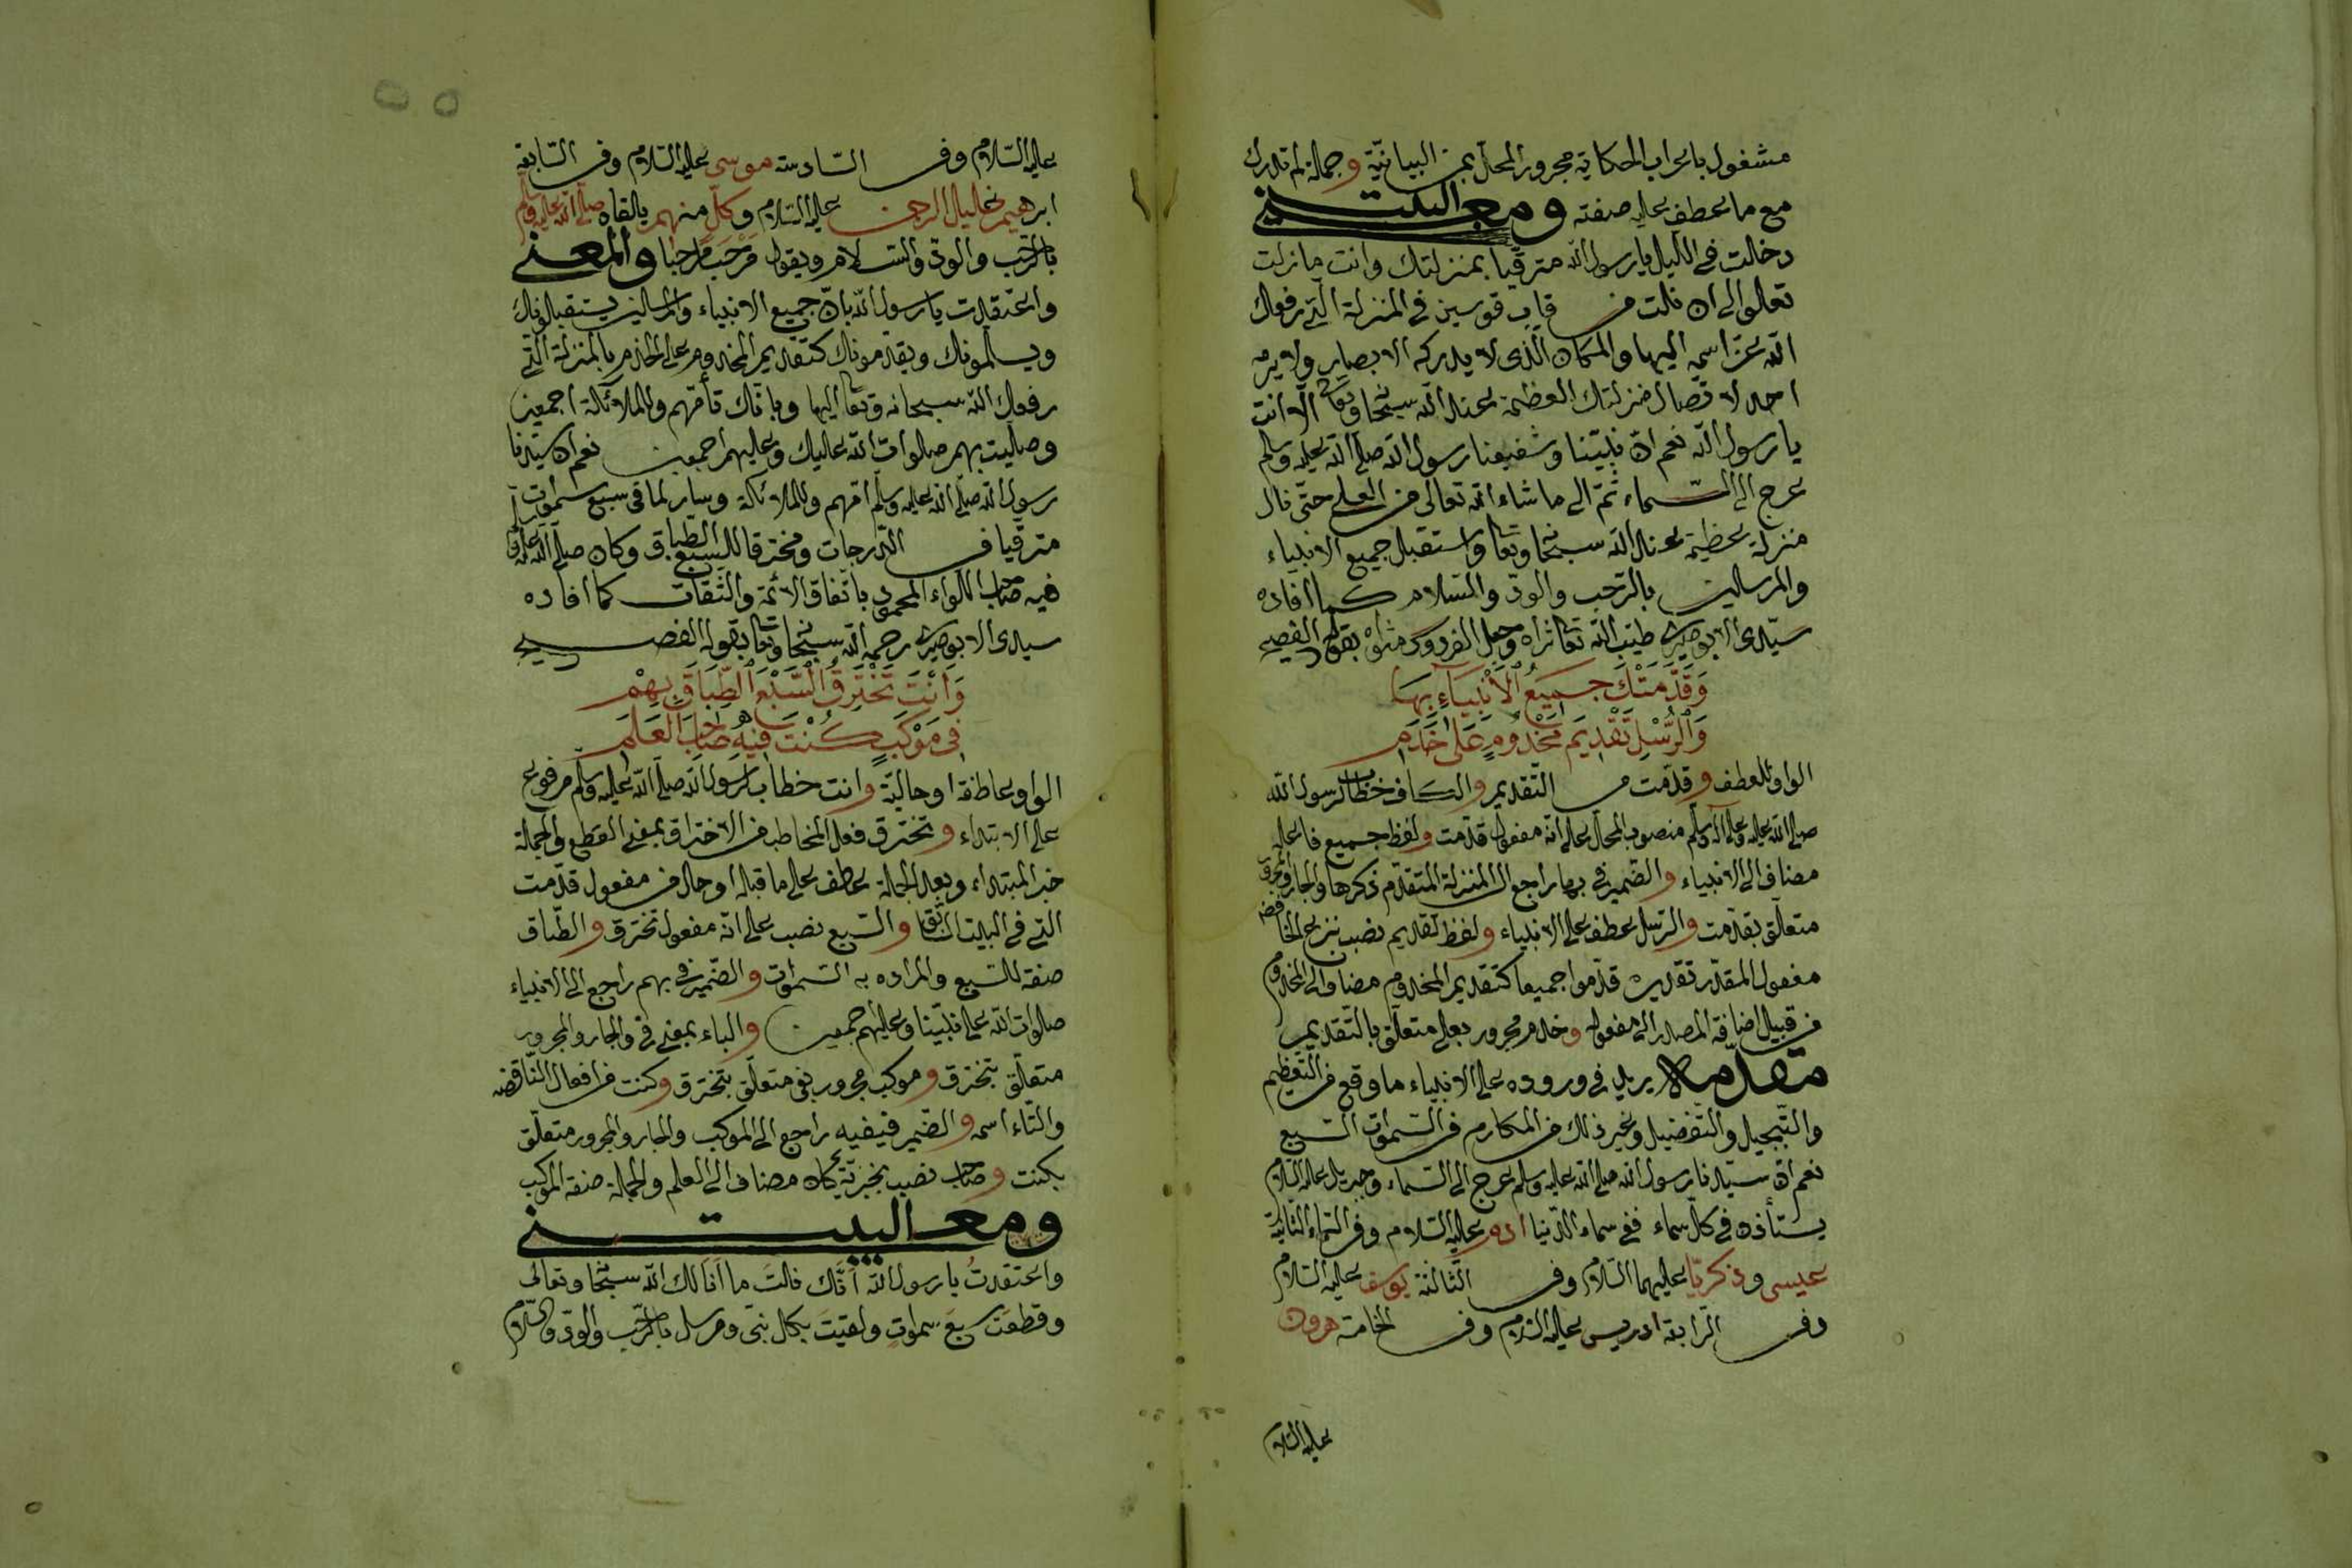 مشغول باعراب الحكاية مجرور المحل بمن البيانيّة وجملة لم تدرك
مع ما عطف عليه صفته ومعنى البيت
دخلت في الليل يا رسول الله مترقّيا بمنزلتك وانت ما زلت
تعلو الى ان نلت من قاب قوسين في المنزلة الّتي رفعك
الله عزّ اسمه اليها والمكان الّذى لا يدركه الابصار ولا يرم
احد لا تصال منزلتك العظيمة عند الله سبحانه وتعالى الّا انت
يا رسول الله نعم انّ نبيّنا وشفيعنا رسول الله صلّى الله عليه وسلم
عرج الى السّماء ثمّ الى ما شاء الله تعالى من العلى حتّى نال
منزلة عظيمة عند الله سبحانه وتعا واستقبل جميع الانبياء
والمرسلين بالترحّب والودّ والسّلام كما افاده
سيّدى الابوصيرى طيّب الله تعا ثراه وجعل الفردوس مثواه بقوله الفصيح
وَقَدَّمَتْكَ جَمِيعُ الْأَنْبِيَاءِ بِهَا
وَالرُّسْلِ تَقْدِيمَ مَخْدُومٍ عَلَى خَدَمِ
الواو للعطف وقدّمت من التّقديم والكاف خطاب لرسول الله
صلى الله عليه وعلى آله وسلّم منصوب المحلّ على انّه مفعول قدّمت ولفظ جميع فاعله
مضاف الى الانبياء والضّمير في بها راجع الى المنزلة المتقدّم ذكرها والجار والمجرور
متعلّق بقدّمت والرّسل عطف على الانبياء ولفظ تقديم نصب بنزع الخافض
مفعول المقدّر تقديره قدّموا جميعا كتقديم المخدوم مضاف الى المخدوم
من قبيل اضافة المصدر الى مفعوله وخدم مجرور بعلى متعلّق بالتّقديم
مقدّمة يريد في وروده على الانبياء ما وقع من التّعظيم
والتّبجيل والتّفضيل وغير ذلك من المكارم في السّموات السّبع
نعم انّ سيّدنا رسول الله صلى الله عليه وسلم عرج الى السّماء وجبريل عليه السّلام
يستأذن في كلّ سماء ففي سماء الدّنيا ادم عليه السّلام وفي السّماء الثانية
عيسى وزكريّا عليهما السّلام وفى الثّالثة يوسف عليه السّلام
وفى الرّابعة ادريس عليه السّلام وفى الخامسة هرون
عليه السّلام
عليه السّلام وفى السّادسة موسى عليه السّلام وفى السّابعة
ابرهيم خليل الرحمن عليه السّلام وكلّ منهم يلقاه صلّى الله عليه وسلّم
بالترحّب والودّ والسّلام ويقول مَرْحَبًا مرحبا والمعنى
واعتقدت يا رسول الله بانّ جميع الانبياء والمرسلين يستقبلونك
ويسلّمونك ويقدّمونك كتقديم المخدوم على الخدم بالمنزلة الّتي
رفعك الله سبحانه وتعا اليها وبانّك تأمّهم والملائكة اجمعين
وصلّيت بهم صلوات الله عليك وعليهم اجمعين نعم ان سيّدنا
رسول الله صلّى الله عليه وسلّم امّهم والملائكة وسار لما في سبع سموات
مترقّيا في الدّرجات ومخترقا للسّبع الطّباق وكان صلّى الله عليه وسلّم
فيه صاحب اللّواء المحمود باتّفاق الائمّة والثّقات كما افاده
سيدى الابوصيرى رحمه الله سبحانه وتعا بقوله الفصيح
وَأَنْتَ تَخْتَرِقُ السَّبْعَ الطِّبَاقَ بِهِمْ
فِى مَوْكَبٍ كُنْتَ فِيهِ صَاحِبَ الْعَلَمِ
الواو عاطفة او حاليّة وانت خطاب لرسول الله صلّى الله عليه وسلّم مرفوع
على الابتداء وتخترق فعل المخاطب من الاختراق بمعنى القطع والجملة
خبر المبتداء وبعد الجملة عطف على ما قبله او حال من مفعول قدّمت
الّتي في البيت السّابق والسّبع نصب على انّه مفعول تخترق والطّباق
صفة للسّبع والمراده به السّموات والضّمير في بهم راجع الى الانبياء
صلوات الله على نبيّنا وعليهم اجمعين والباء بمعنى في والجار والمجرور
متعلّق بتخترق وموكب مجرور بفى متعلّق بتخترق وكنت من افعال النّاقصة
والتّاء اسمه والضّمير فيفيه راجع الى الموكب والجار والمجرور متعلّق
بكنت وصاحب نصب بخبريّة كان مضاف الى العلم والجملة صفة الموكب
ومعنى البيت
واعتقدتُ يا رسول الله اَنَّك نلتَ ما اَنَالك الله سبحانه وتعالى
وقطعتَ سبعَ سموات ولقيتَ بكلّ نبّى ومرسل بالترحّب والودّ والسّلام